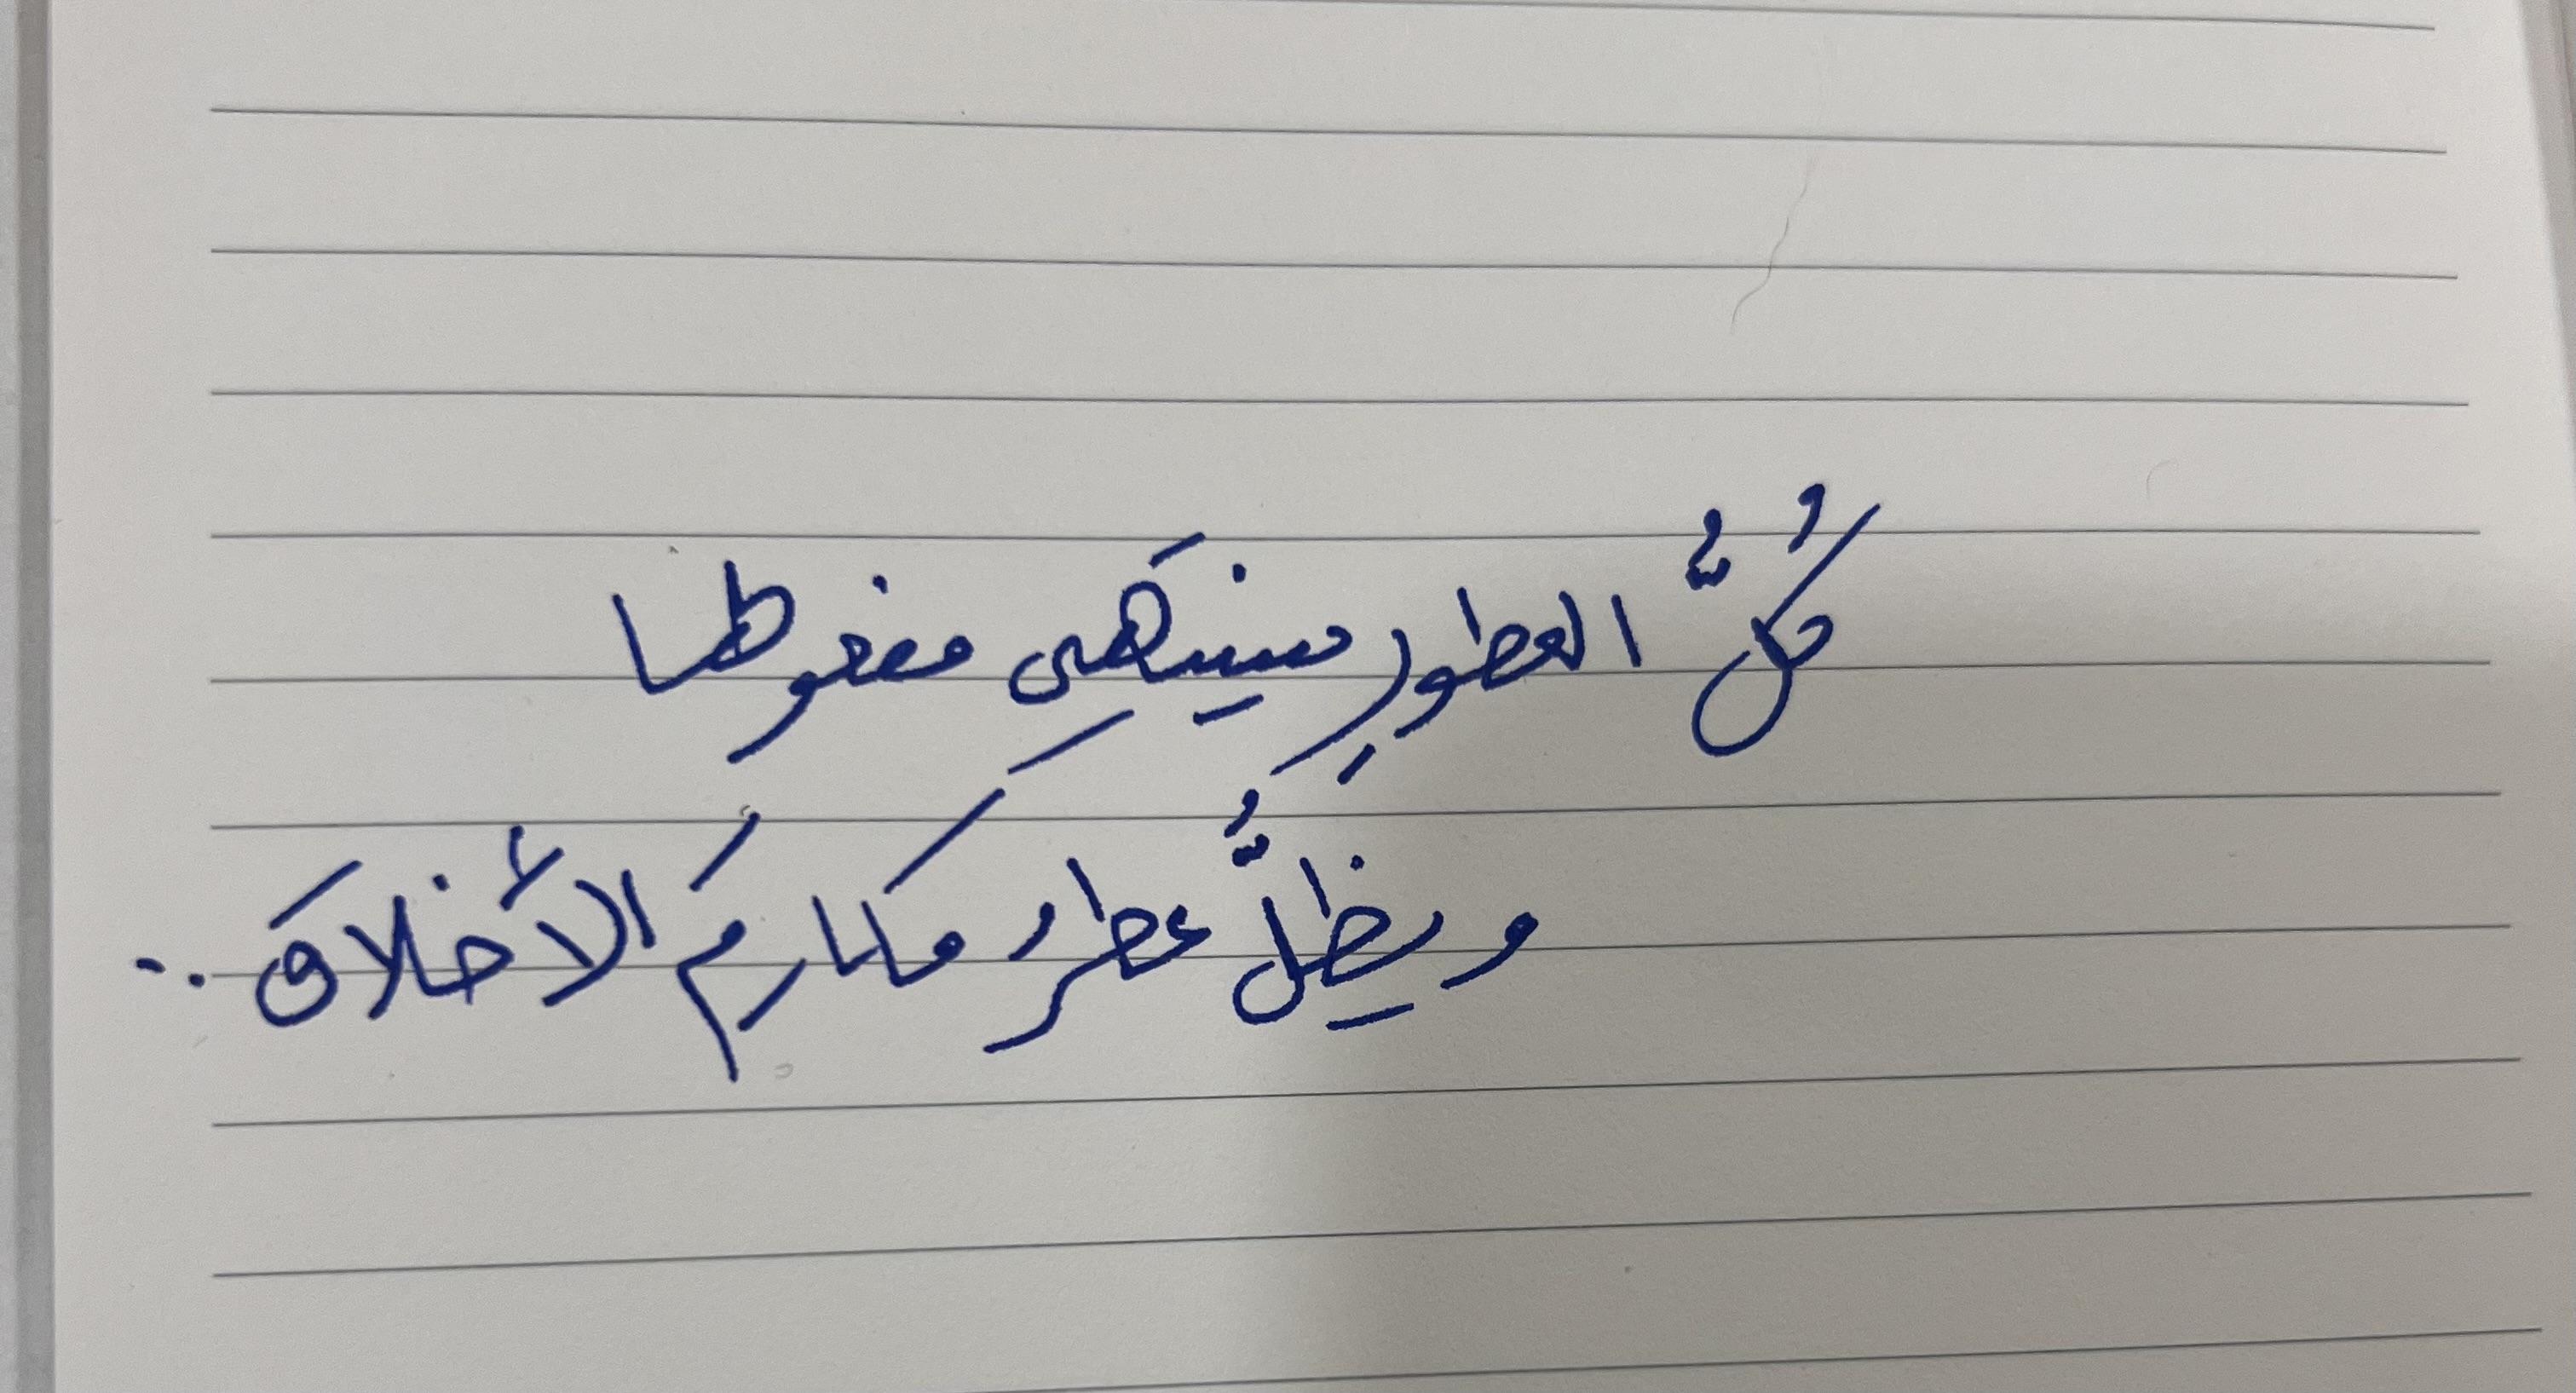 كُلُّ العطورِ سينتهي مفعولها
ويظلُّ عطرُ مكارمَ الأخلاق..